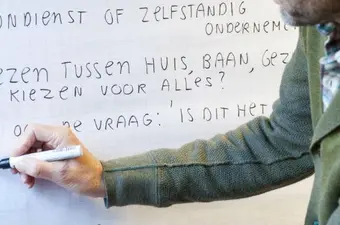 ONDIENST OF ZELFSTANDIG
ONDERNEME
EZEN TUSSEN HUIS, BAAN, GEZ
KIEZEN VOOR ALLES?
VRAAG: 'IS DIT HET